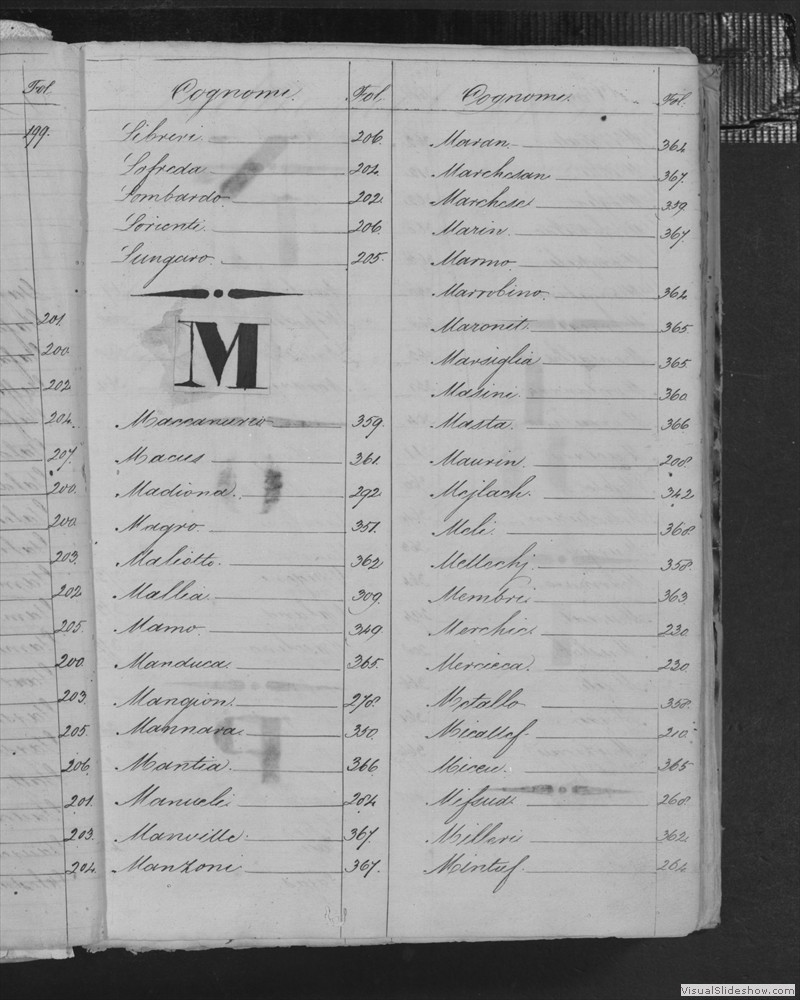 Fol
199.
201.
200.
202
204.
207.
200.
200.
203.
202
205.
200
203.
205.
206.
201.
203.
204.
Cognomi. Fol.
Libreri 206.
Lofreda 202
Lombardo 202
Lorienti 206
Lungaro 205.
M
359.
Macus 361.
Madiona 292
Magro 351.
Maliotto 362
Mallia 309.
Mamo 349.
Manduca 365
Mangion 278.
Mannara 350.
Mantia 366
Manueli 264
Manville 367.
Manzoni 367.
Cognomi. Fol.
Maran 364
Marchesan 367.
Marchese 339.
Marin 367
Marmo
Marrobino 364
Maronit 365
Marsiglia 365
Masini 360
Masta 366
Maurin 208
Mejlach 342
Meli 368.
358.
Membri 363
230
Mercieca 230
Metallo 358.
Micallef 210
Miceu 365
Mifsud 268.
Milleri 362
Mintuf 264
VisualSlideshow.com